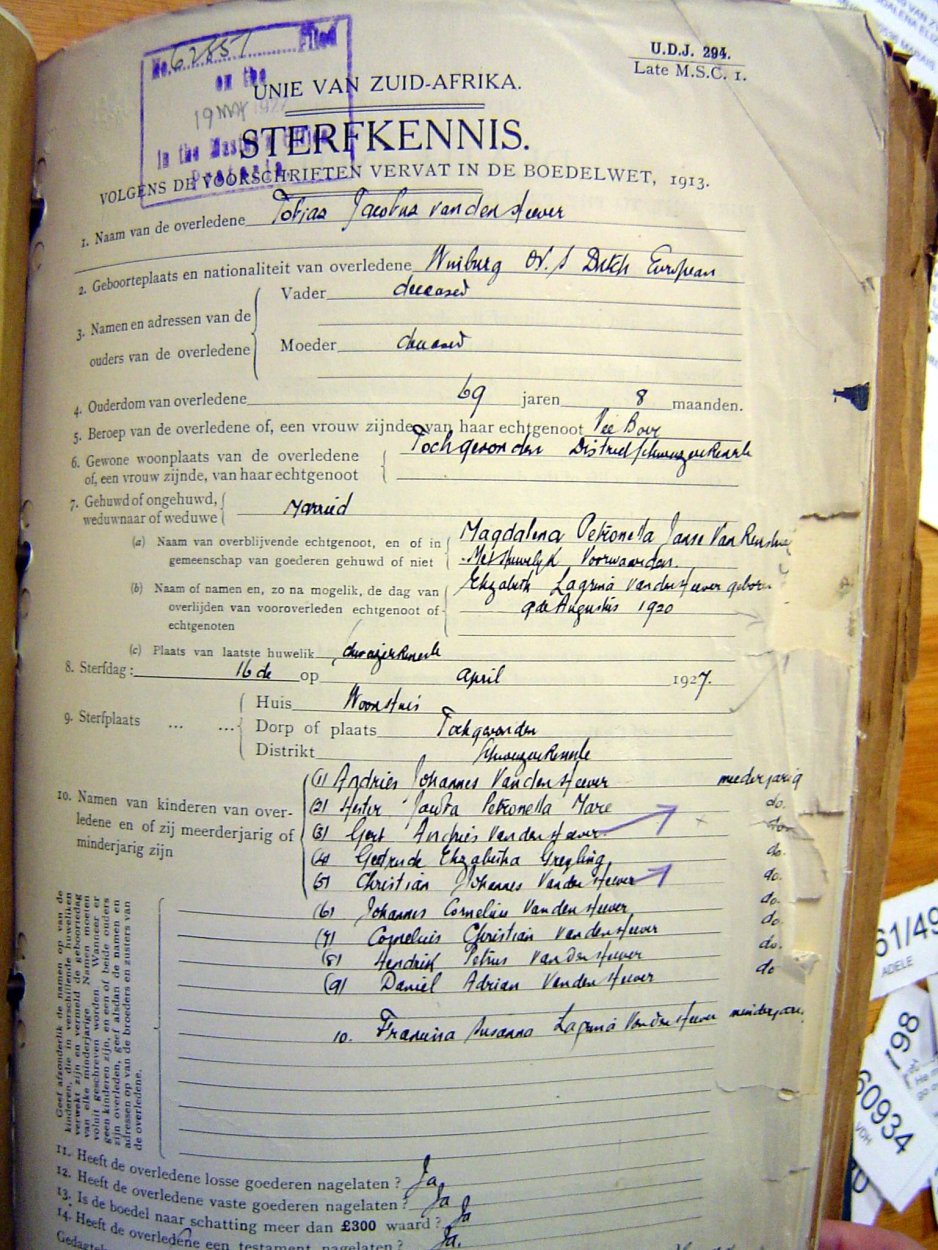 U.D.J. 294.
Late M.S.C. 1.
No. 62857 Filed
on the
19 MAY 1927
In the Master's Office
Pretoria
UNIE VAN ZUID-AFRIKA.
STERFKENNIS.
VOLGENS DE VOORSCHRIFTEN VERVAT IN DE BOEDELWET, 1913.
1. Naam van de overledene Tobias Jacobus van den Heever
2. Geboorteplaats en nationaliteit van overledene Winburg O.V.S Dutch European
3. Namen en adressen van de ouders van de overledene
Vader deceased
Moeder deceased
4. Ouderdom van overledene 69 jaren 8 maanden.
5. Beroep van de overledene of, een vrouw zijnde, van haar echtgenoot Vee Boer
6. Gewone woonplaats van de overledene Tochgevonden District Schweizer Reneke
of, een vrouw zijnde, van haar echtgenoot
7. Gehuwd of ongehuwd,
weduwnaar of weduwe Married
(a) Naam van overblijvende echtgenoot, en of in Magdalena Petronella Janse Van
gemeenschap van goederen gehuwd of niet Met Huwelijk Voorwaarden.
(b) Naam of namen en, zo na mogelik, de dag van Elizabeth Lagrina van den Heever geboren
overlijden van vooroverleden echtgenoot of 9de Augustis 1920
echtgenoten
(c) Plaats van laatste huwelik Schweizer Reneke
8. Sterfdag: 16 de op April 1927.
9. Sterfplaats ... ...
Huis Woonhuis
Dorp of plaats Tochgevonden
Distrikt Schweizer Reneke
10. Namen van kinderen van overledene en of zij meerderjarig of minderjarig zijn
(1) Andries Johannes Van den Heever meederjarig
(2) Hester Jacoba Petronella Mare do.
(3) Gert Andries Van den Heever do.
(4) Gertrude Elizabetha Greyling do.
(5) Christian Johannes Van den Heever do.
(6) Johannes Cornelius Van den Heever do.
(7) Cornelius Christian Van den Heever do.
(8) Hendrik Petrus Van Den Heever do.
(9) Daniel Adrian Van den Heever do
10. Francina Susanna Lagrina Van den Heever
Geef afzonderlik de namen op van de
kinderen, die in verschillende huweliken
verwekt zijn en vermeld de geboortedag
van elke minderjarige. Namen moeten
voluit geschreven worden. Wanneer er
geen kinderen zijn, en een of beide ouders
zijn overleden, geef alsdan de namen en
adressen op van de broeders en zusters van
de overledene.
11. Heeft de overledene losse goederen nagelaten? Ja
12. Heeft de overledene vaste goederen nagelaten? Ja
13. Is de boedel naar schatting meer dan £300 waard? Ja
14. Heeft de overledene een testament nagelaten? Ja.
61/49
ADELE
867
60934
VDH